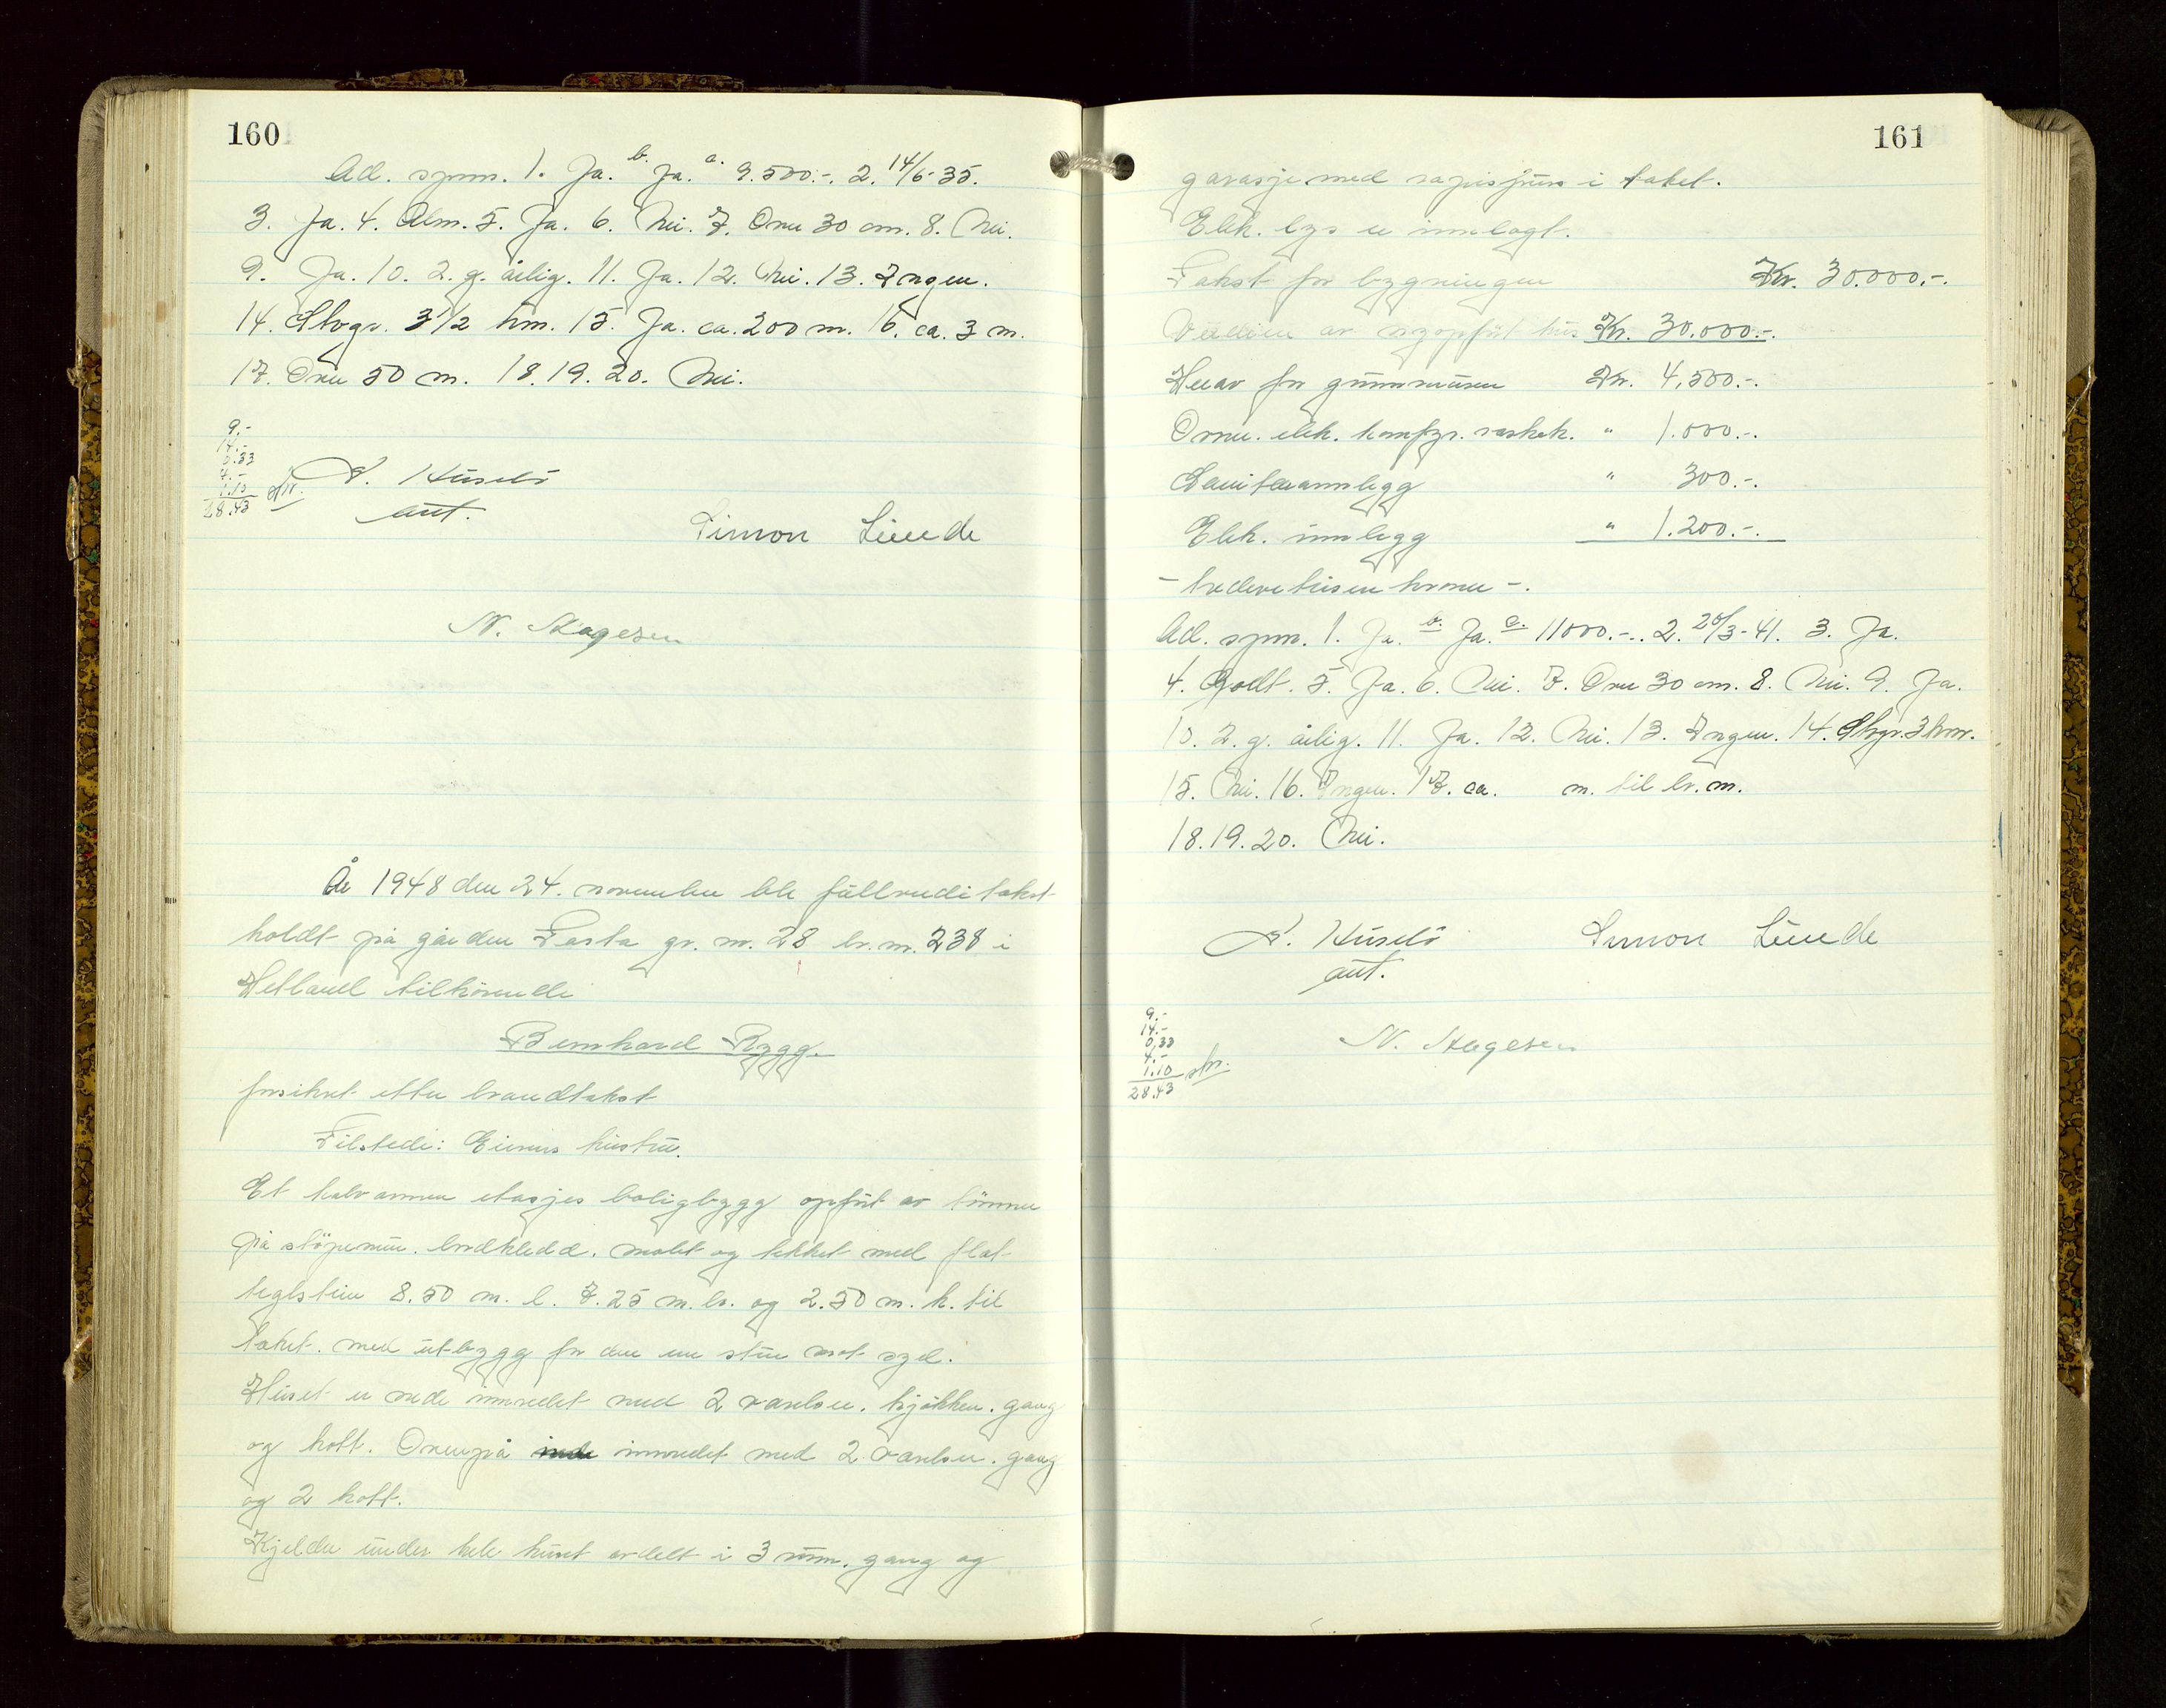 160
Ad. spm. 1. Ja. b. Ja. a. 9.500.-. 2. 14/6-35.
3. Ja. 4. Alm. 5. Ja. 6. Nei. 7. Over 30 cm. 8. Nei.
9. Ja. 10. 2. g. årlig. 11. Ja. 12. Nei. 13. Ingen.
14. Stvgr. 3 1/2 km. 15. Ja. ca. 200 m. 16. ca. 3 m.
17. Over 50 m. 18. 19. 20. Nei.
9.-
14.-
0.33
4.-
1.10
28.43
A. Husebö
aut.
Simon Lunde
N. Aagesen
År 1948 den 24. november ble fullverditakst
holdt på gården Tasta gr. nr. 28 br. nr. 238 i
Hetland tilhörende
Bernhard Rygg.
forsikret etter branntakst
Tilstede: Eierens hustru.
Et halvannen etasjes boligbygg opfört av tömmer
på stöpemur. bordkledd. malt og tekket med flat
teglstein 8.50 m. l. 7.25 m. br. og 2.50 m. h. til
taket. med utbygg for den ene stue mot syd.
Huset er nede innredet med 2 værelser. kjökken. gang
og kott. Ovenpå innredet med 2 værelser. gang
og 2 kott.
Kjelder under hele huset avdelt i 3 rum. gang og
161
garasje med i taket.
Elek. lys er innlagt.
Takst for bygningen Kr. 30.000.-.
Verdien av nyopfört hus Kr. 30.000.-.
Herav for grunnmuren Kr. 4,500.-.
Ovner. elek. komfyr. vaskek. " 1.000.-.
Sanitæranlegg " 300.-.
Elek. innlegg " 1.200.-.
- tredevetusen kroner -.
Ad. spm. 1. Ja. b. Ja. c. 11000.-. 2. 20/3-41. 3. Ja.
4. Godt. 5. Ja. 6. Nei. 7. Over 30 cm. 8. Nei. 9. Ja.
10. 2. g. årlig. 11. Ja. 12. Nei. 13. Ingen. 14. Stvgr. 3 km.
15. Nei. 16. Ingen. 17. ca. m. til br. m.
18. 19. 20. Nei.
A. Husebö Simon Lunde
aut.
9.-
14.-
0,33
4.-
1.10
28.43
N. Aagesen